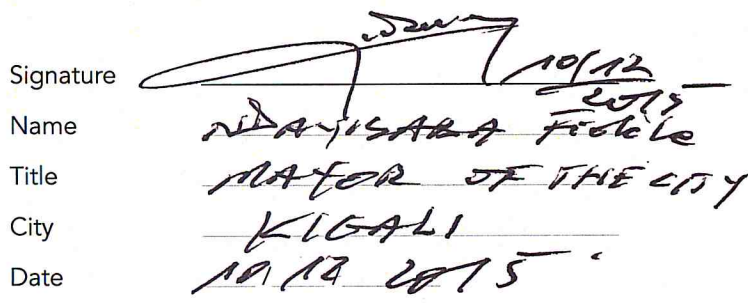 Signature 10/12
2015
Name NDAYISABA Fidèle
Title MAYOR OF THE CITY
City KIGALI
Date 10/12 2015